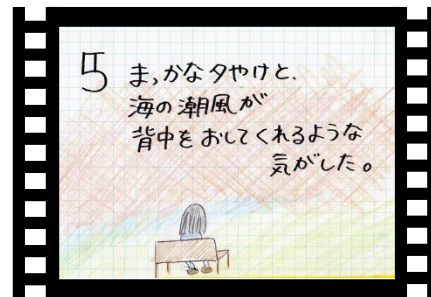 5
まっかな夕やけと、
海の潮風が
背中をおしてくれるような
気がした。